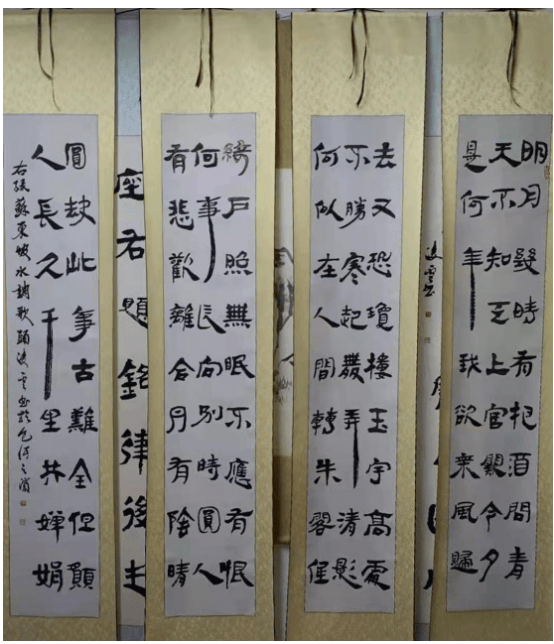 明月幾時有把酒問青
天不知天上宮闕今夕
是何年我欲乘風歸
去又恐瓊樓玉宇高處
不勝寒起舞弄清影
何似在人間轉朱閣低
綺戶照無眠不應有恨
何事長向別時圓人
有悲歡離合月有陰晴
圓缺此事古難全但願
人長久千里共嬋娟
右錄蘇東坡水調歌頭凌雲書於包河之濱
座右題銘律後
凌雲書